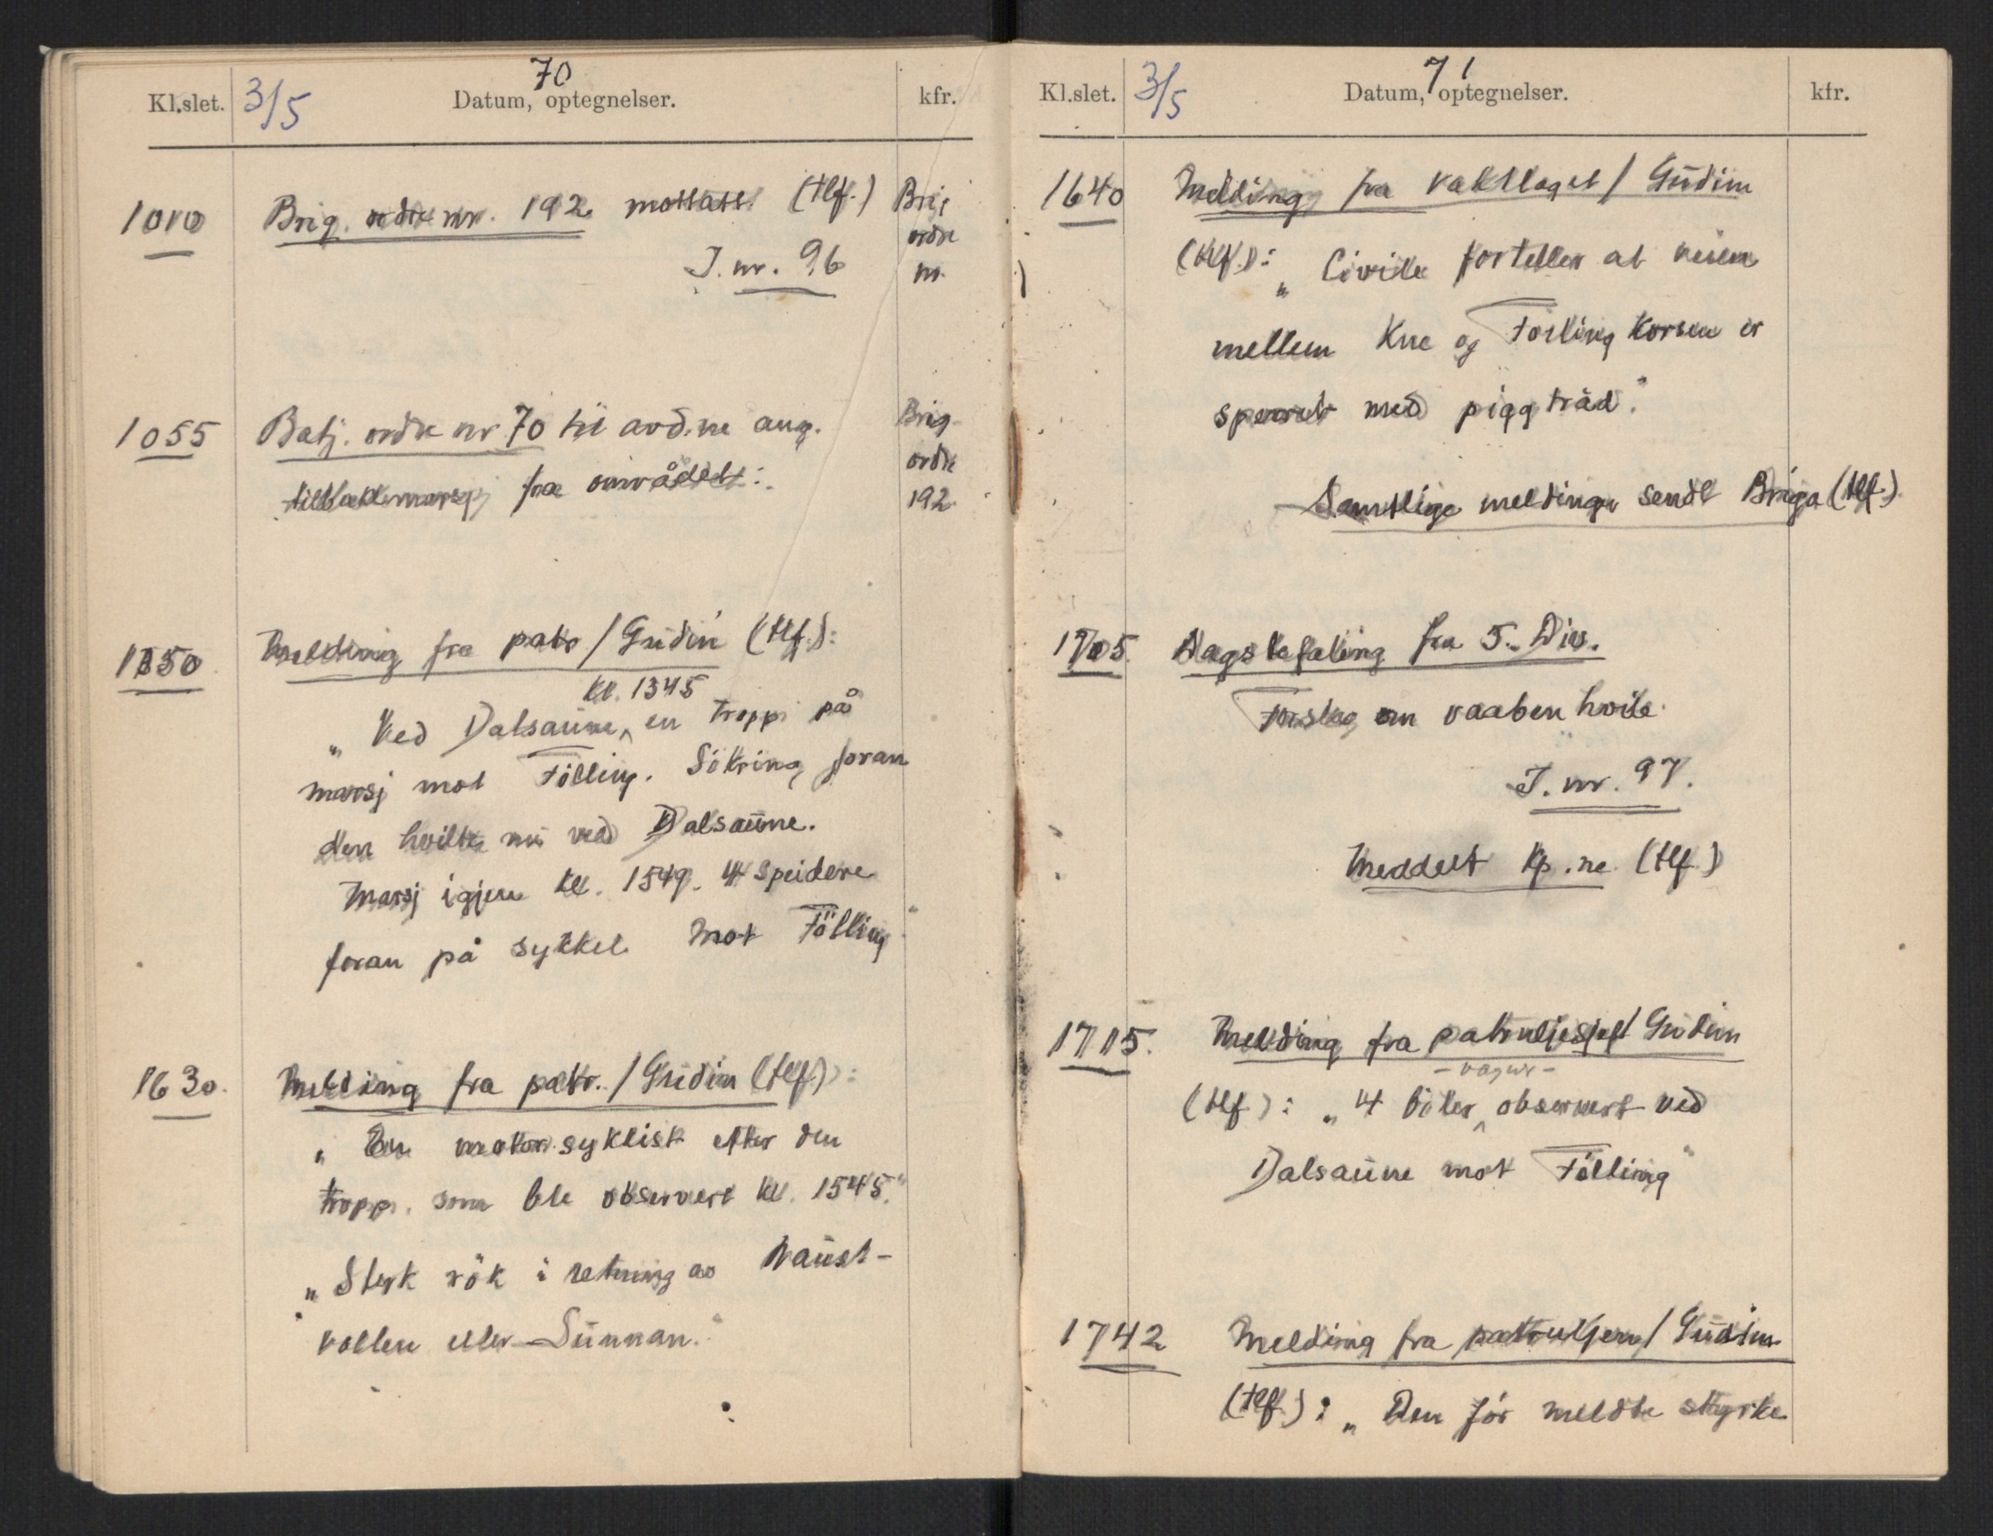 70
Kl.slet. 3/5 Datum, optegnelser. kfr.
1010 Brig. ordre nr. 192 mottatt (tlf.) Brig
J. nr. 96 ordre
nr.
1055 Batj. ordre nr 70 til avd.ne ang. Brig.
tilbakemarsj fra området: ordre
192.
1550 Melding fra patr / Gudin (tlf.):
Kl. 1345
„Ved Dalsaune, en tropp på
marsj mot Fölling. Sikring foran
den hvilte nu ved Dalsaune.
Marsj igjen kl. 1549. 4 speidere
foran på sykkel mot Fölling"
1630. Melding fra patr. / Gudin (tlf.):
„En motorsyklist efter den
tropp. som ble observert kl. 1545."
„Sterk rök i retning av Naust-
vollen eller Sunnan."
71
Kl.slet. 3/5 Datum, optegnelser. kfr.
1640 Melding fra vaktlaget / Gudim
(tlf.): „Civile forteller at veien
mellem Kne og Fölling korsen er
sperret med piggtråd."
Samtlige meldinger sendt Briga (tlf.)
1705. Dagsbefaling fra 5. Div.
Forslag om vaabenhvile.
J. nr. 97.
Meddelt Kp.ne (tlf.)
1715. Melding fra patruljesjef / Gudim
- vogner -
(tlf.): „4 biler observert ved
Dalsaune mot Fölling"
1742 Melding fra patruljen / Gudim
(tlf.): „Den för meldte styrke